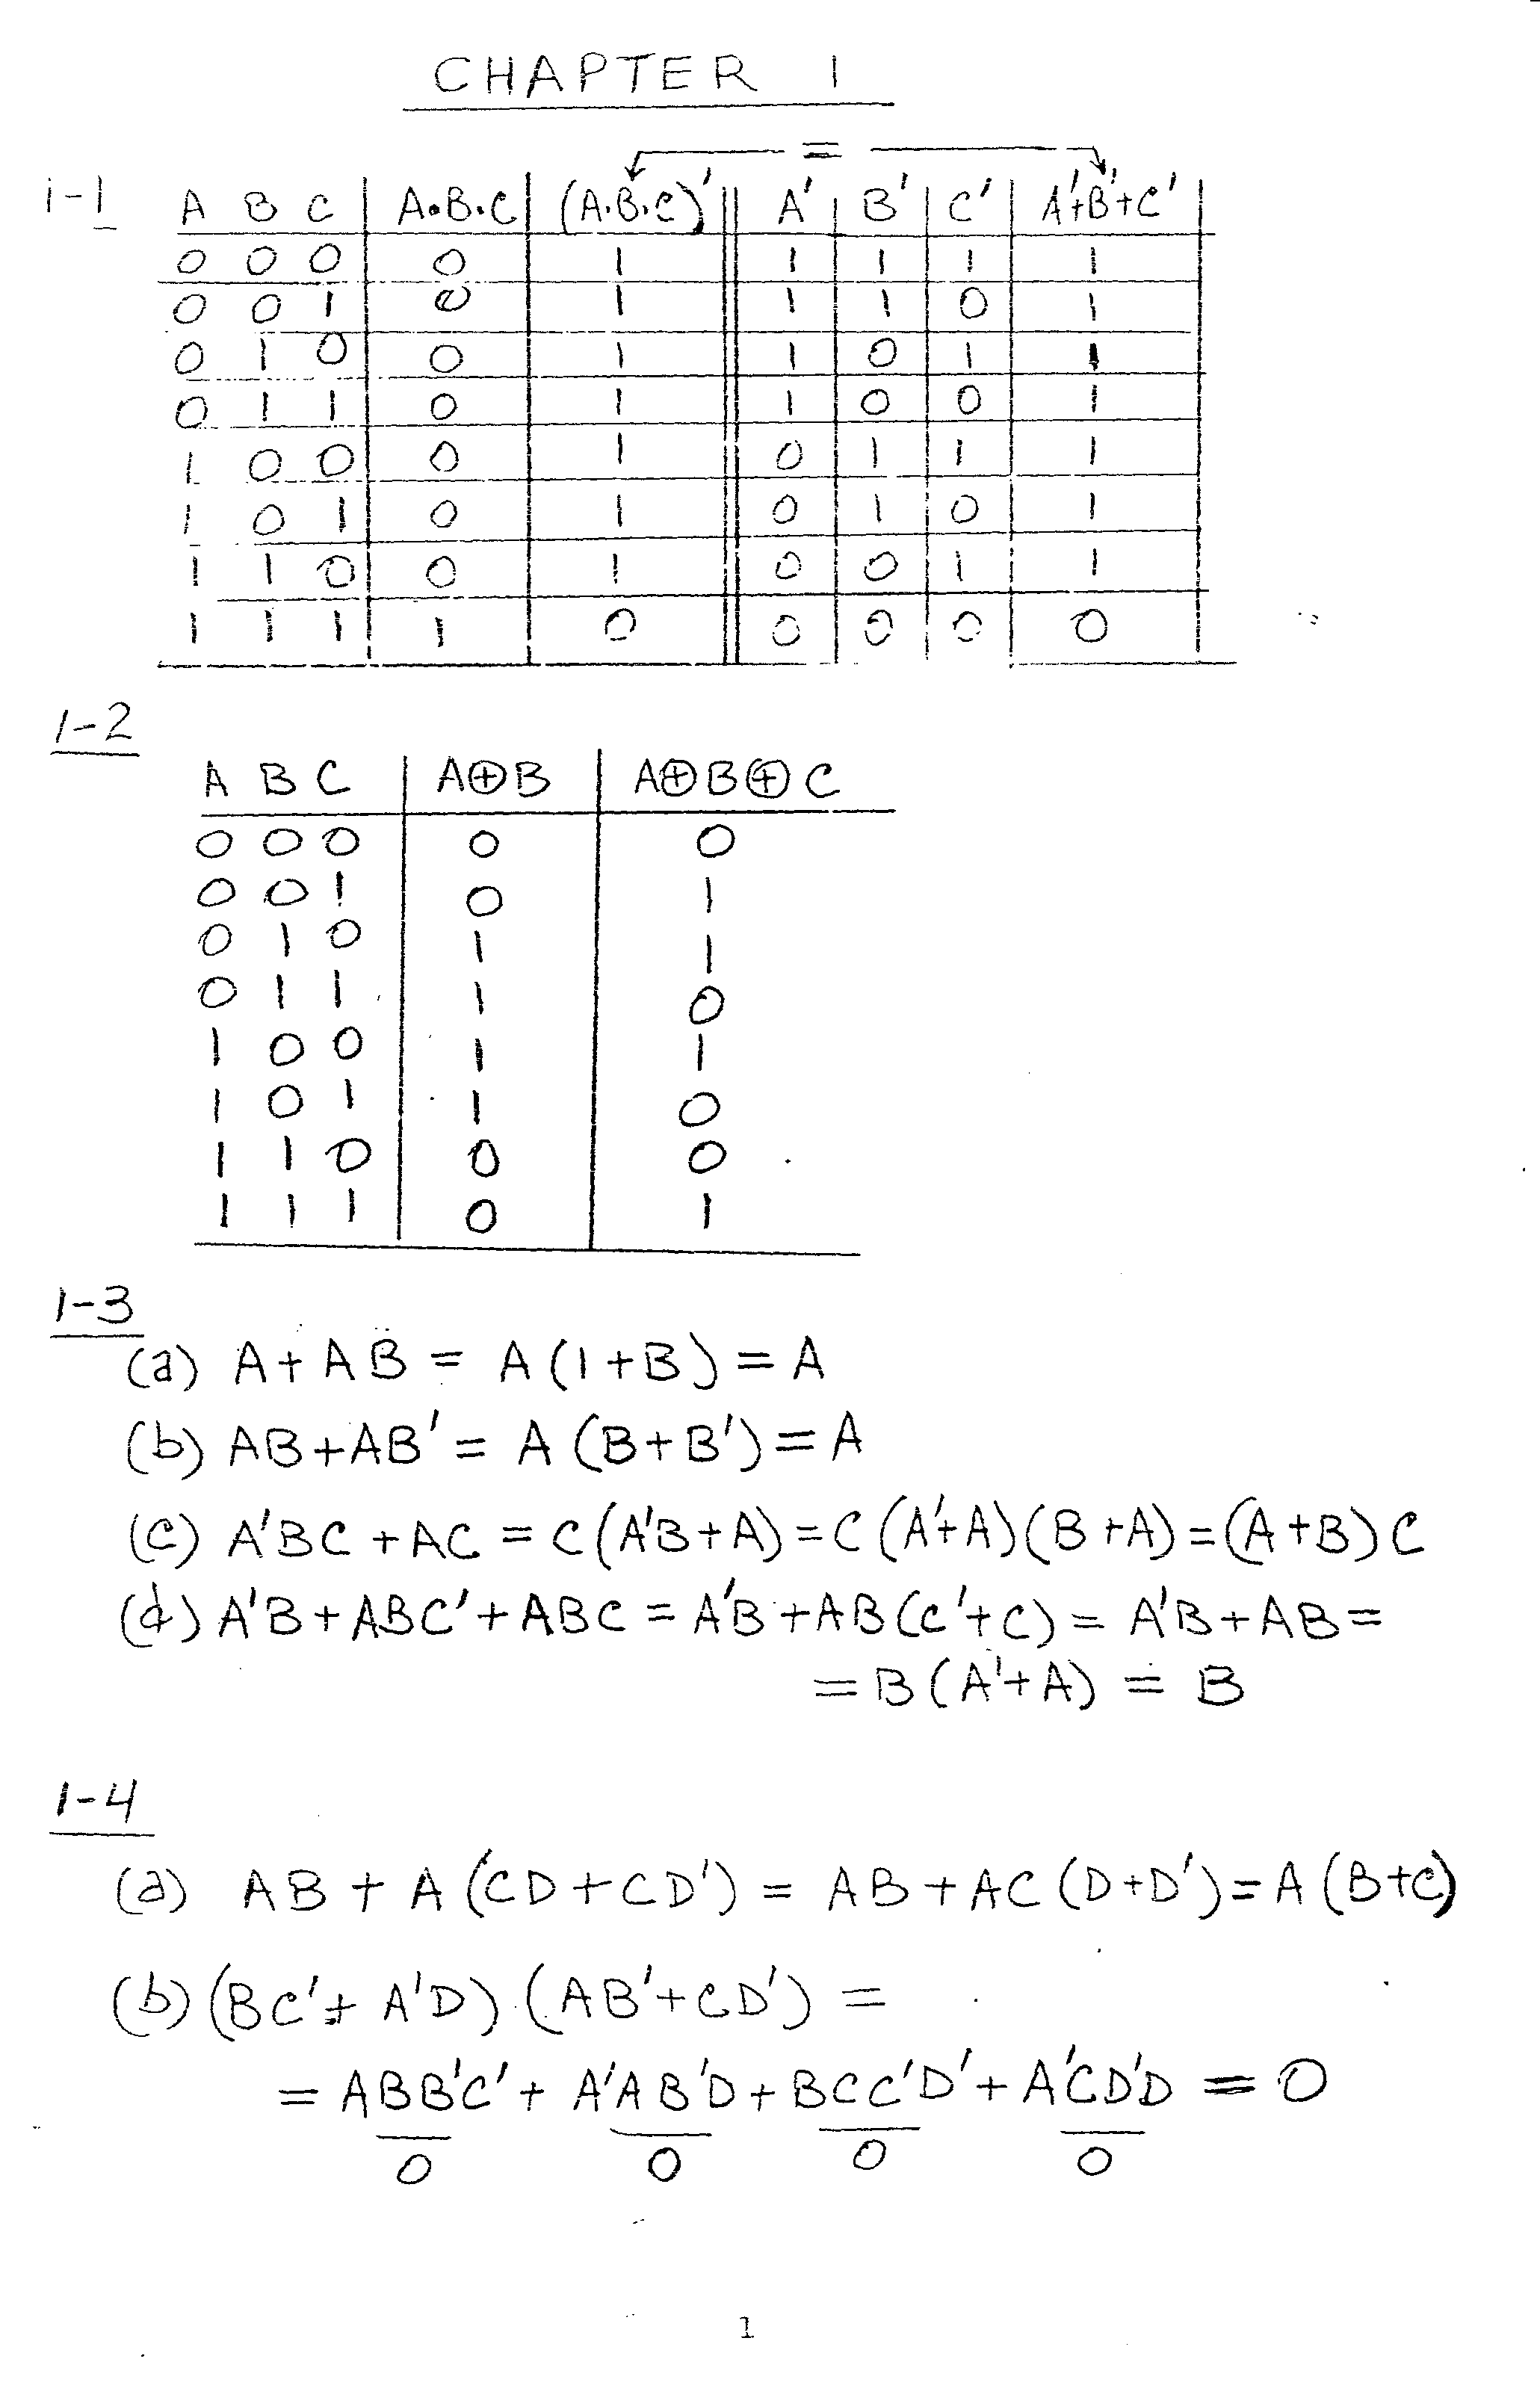 CHAPTER 1
=
1-1 A B C A·B·C (A·B·C)' A' B' C' A'+B'+C'
0 0 0 0 1 1 1 1 1
0 0 1 0 1 1 1 0 1
0 1 0 0 1 1 0 1 1
0 1 1 0 1 1 0 0 1
1 0 0 0 1 0 1 1 1
1 0 1 0 1 0 1 0 1
1 1 0 0 1 0 0 1 1
1 1 1 1 0 0 0 0 0
1-2
A B C A⊕B A⊕B⊕C
0 0 0 0 0
0 0 1 0 1
0 1 0 1 1
0 1 1 1 0
1 0 0 1 1
1 0 1 1 0
1 1 0 0 0
1 1 1 0 1
1-3
(a) A+AB = A(1+B) = A
(b) AB+AB' = A(B+B') = A
(c) A'BC+AC = C(A'B+A) = C(A'+A)(B+A) = (A+B)C
(d) A'B+ABC'+ABC = A'B+AB(C'+C) = A'B+AB =
= B(A'+A) = B
1-4
(a) AB+A(CD+CD') = AB+AC(D+D') = A(B+C)
(b) (BC'+A'D)(AB'+CD') =
= ABB'C'+A'AB'D+BCC'D'+A'CD'D = 0
0 0 0 0
1